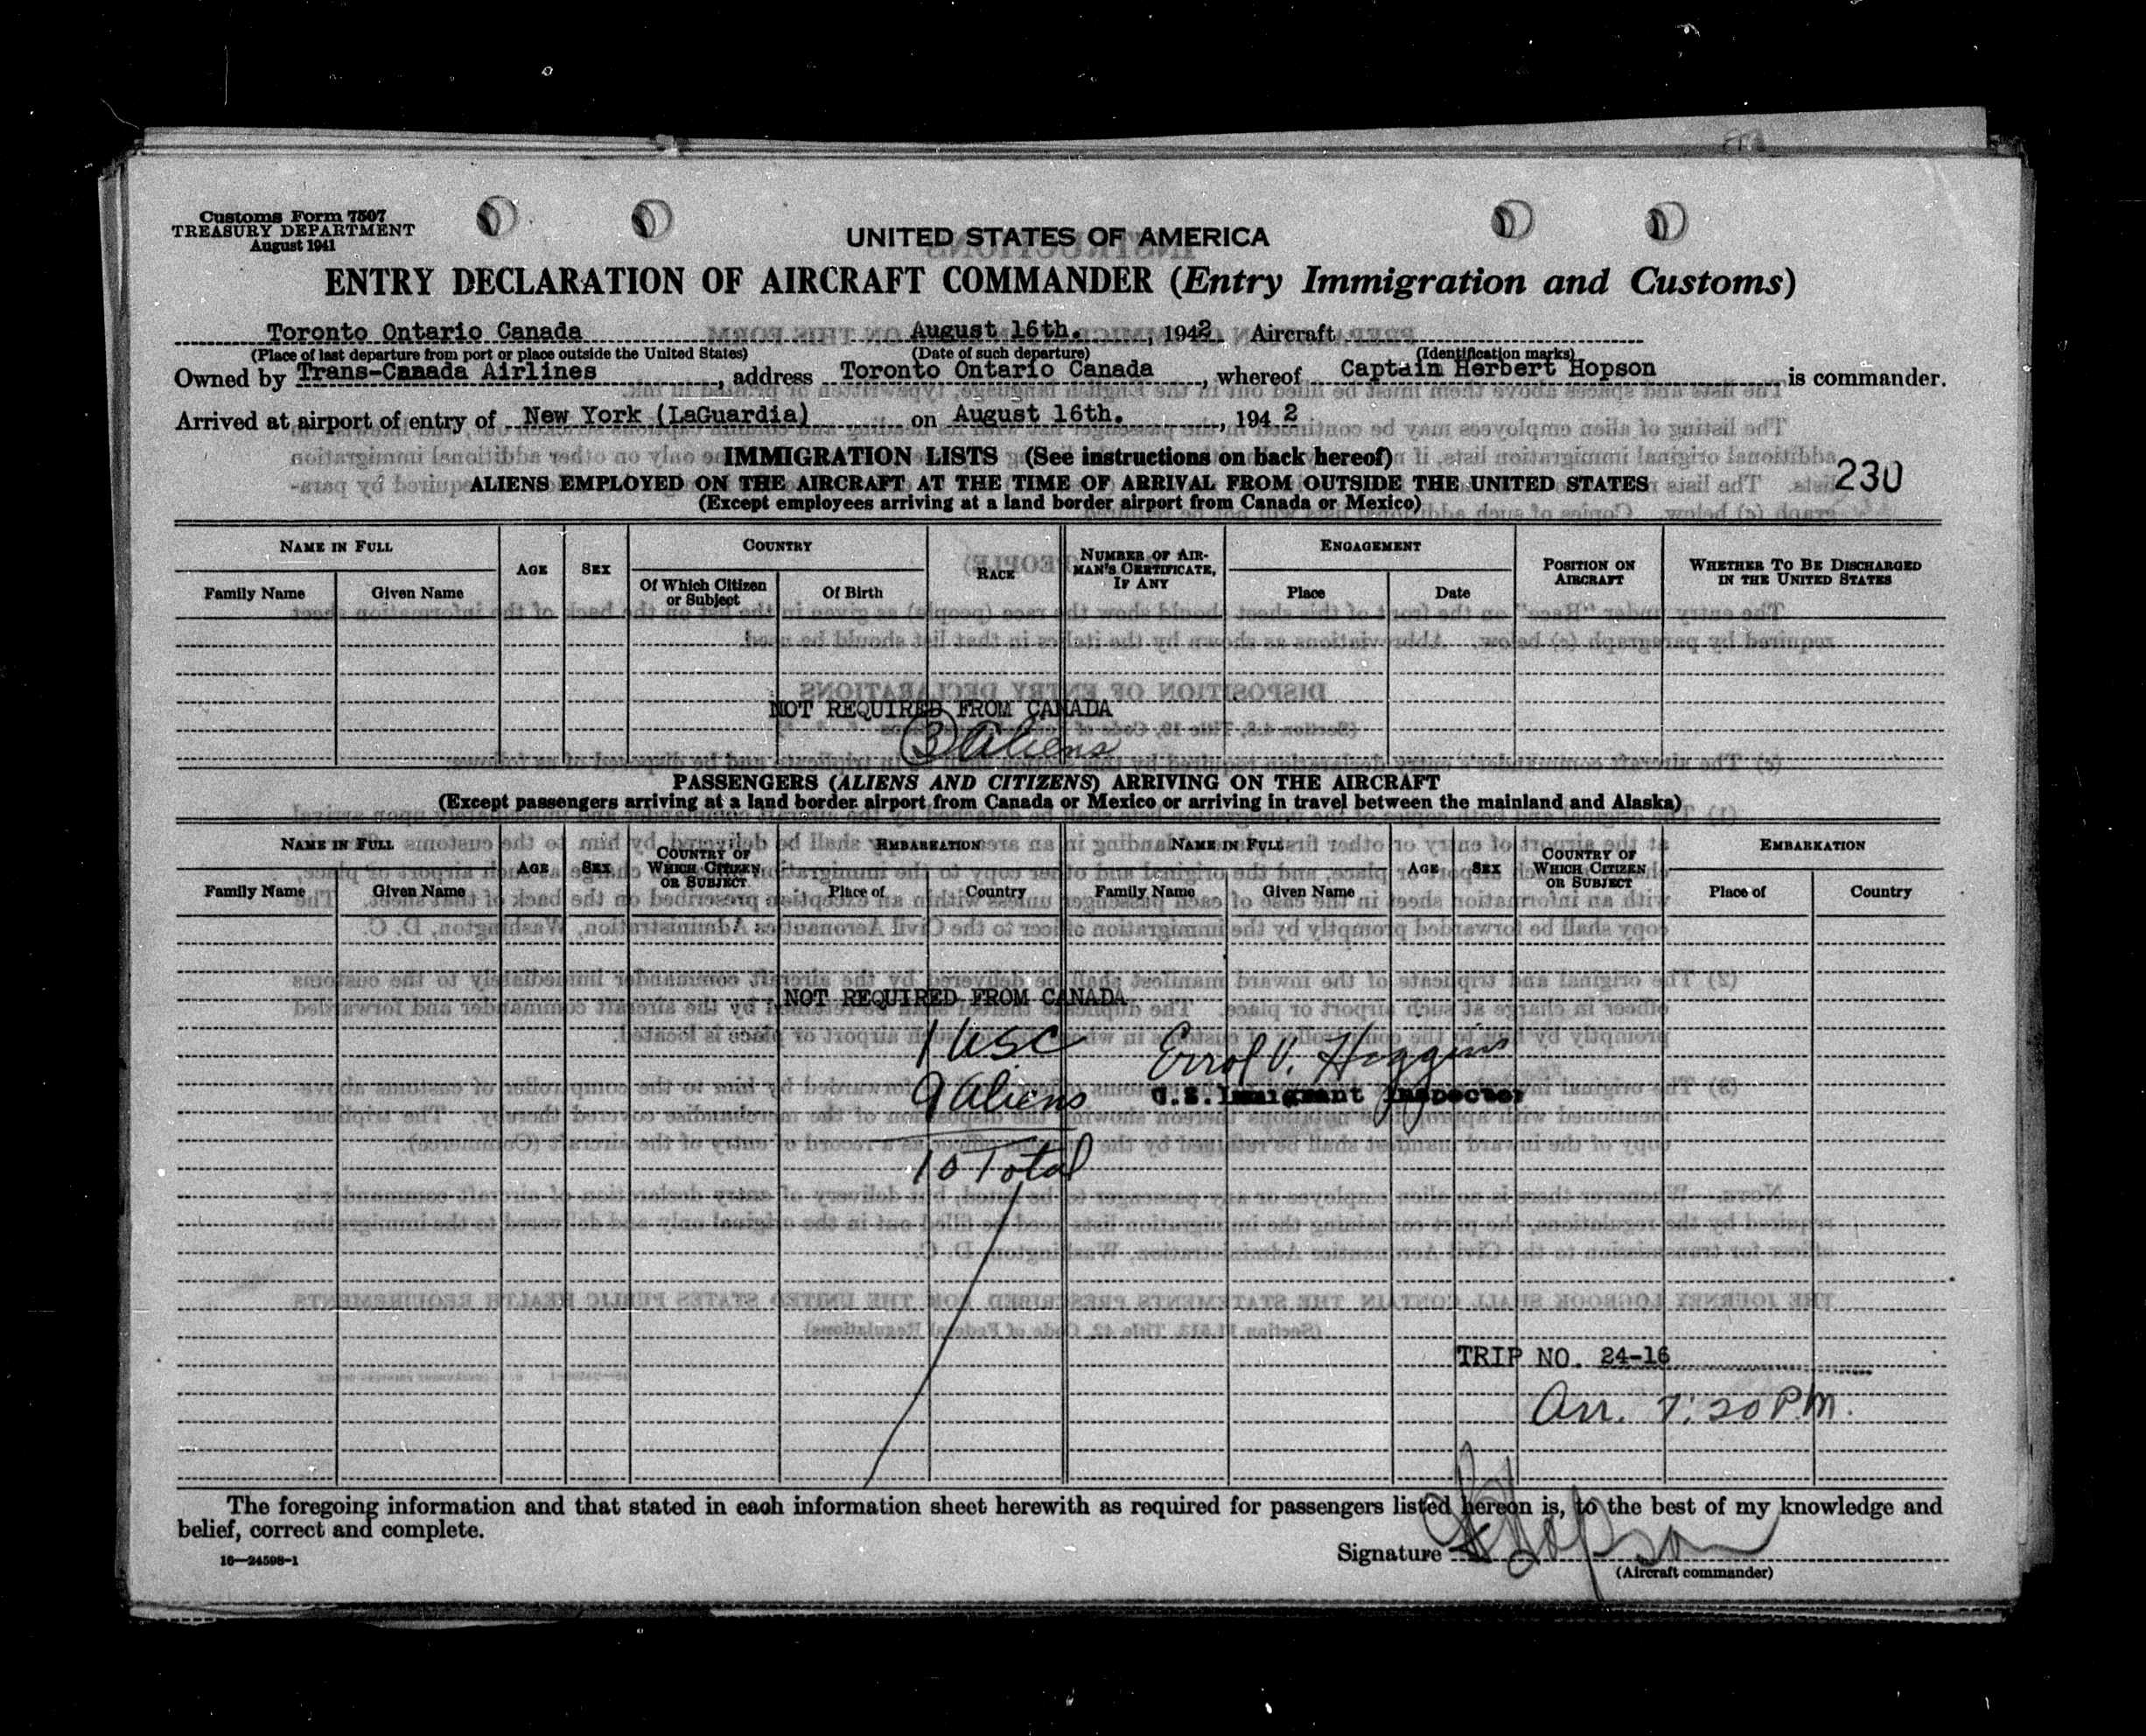 Customs Form 7507
TREASURY DEPARTMENT
August 1941
UNITED STATES OF AMERICA
ENTRY DECLARATION OF AIRCRAFT COMMANDER (Entry Immigration and Customs)
Toronto Ontario Canada August 16th. , 1942 Aircraft
(Place of last departure from port or place outside the United States) (Date of such departure) (Identification marks)
Owned by Trans-Canada Airlines , address Toronto Ontario Canada , whereof Captain Herbert Hopson is commander.
Arrived at airport of entry of New York (LaGuardia) on August 16th. , 194 2
IMMIGRATION LISTS (See instructions on back hereof)
230
ALIENS EMPLOYED ON THE AIRCRAFT AT THE TIME OF ARRIVAL FROM OUTSIDE THE UNITED STATES
(Except employees arriving at a land border airport from Canada or Mexico)
NAME IN FULL AGE SEX COUNTRY RACE NUMBER OF AIRMAN'S CERTIFICATE, IF ANY ENGAGEMENT POSITION ON AIRCRAFT WHETHER TO BE DISCHARGED IN THE UNITED STATES
Family Name Given Name Of Which Citizen or Subject Of Birth Place Date
NOT REQUIRED FROM CANADA
3 Aliens
PASSENGERS (ALIENS AND CITIZENS) ARRIVING ON THE AIRCRAFT
(Except passengers arriving at a land border airport from Canada or Mexico or arriving in travel between the mainland and Alaska)
NAME IN FULL AGE SEX COUNTRY OF WHICH CITIZEN OR SUBJECT EMBARKATION NAME IN FULL AGE SEX COUNTRY OF WHICH CITIZEN OR SUBJECT EMBARKATION
Family Name Given Name Place of Country Family Name Given Name Place of Country
NOT REQUIRED FROM CANADA
1 USC
Errol V. Hoggins
9 Aliens
U.S. Immigrant Inspector
10 Total
TRIP NO. 24-16
Arr. 7:20 PM.
The foregoing information and that stated in each information sheet herewith as required for passengers listed hereon is, to the best of my knowledge and
belief, correct and complete.
16—24598-1
Signature H Hopson
(Aircraft commander)